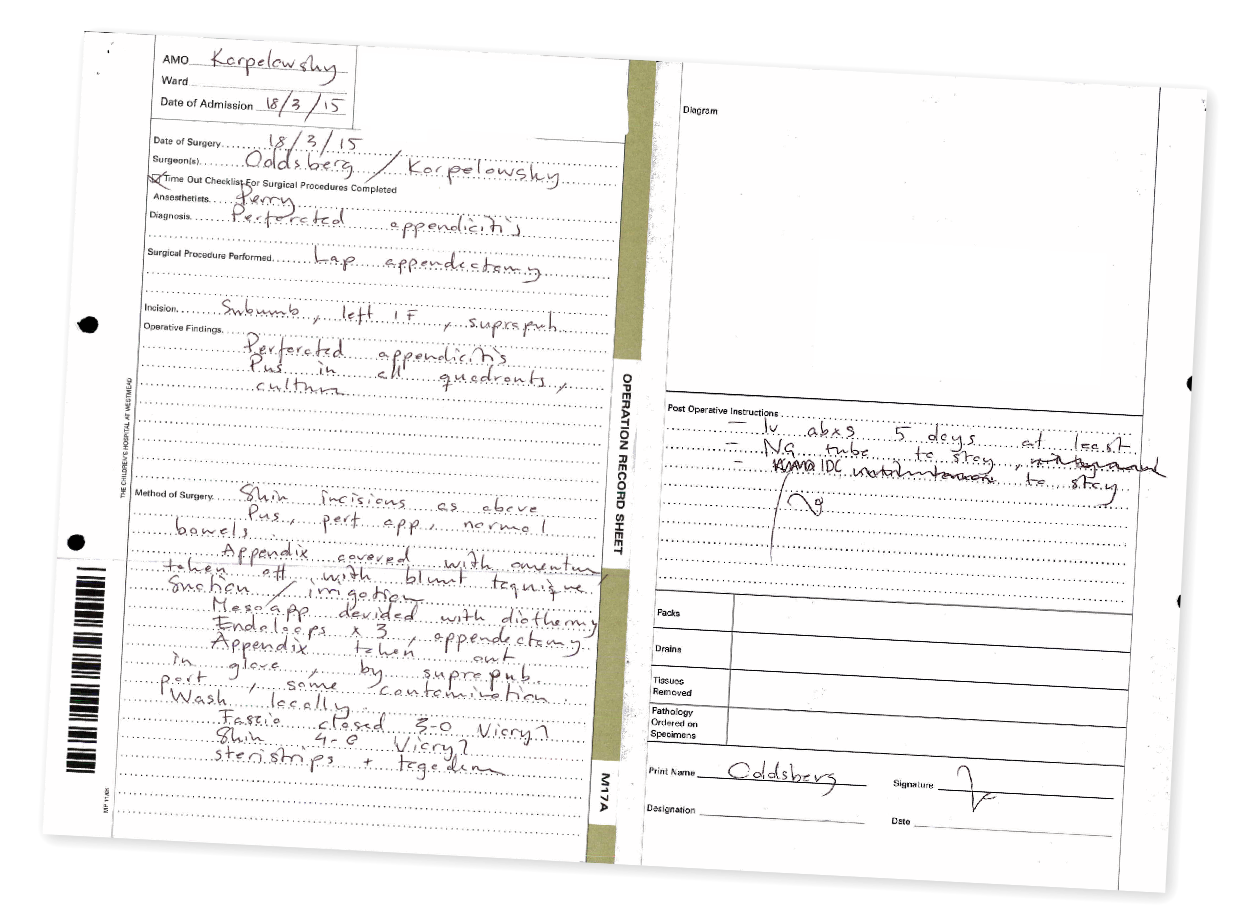 AMO Karpelowsky
Ward
Date of Admission 18/3/15
Date of Surgery 18/3/15
Surgeon(s) Oddsberg / Karpelowsky
Time Out Checklist For Surgical Procedures Completed
Anaesthetists Perry
Diagnosis Perforated appendicitis
Surgical Procedure Performed Lap appendectomy
Incision Subumb, left IF, suprapub
Operative Findings
Perforated appendicitis
Pus in all quadrants,
culture
Method of Surgery Skin incisions as above
Pus, perf app, normal
bowels.
Appendix covered with omentum
taken off with blunt tequique
Suction / irrigation
Mesoapp devided with diathermy
Endoloops x 3, appendectomy
Appendix taken out
in glove, by suprapub
port, some contamination.
Wash locally.
Fascia closed 3-0 Vicryl
Skin 4-0 Vicryl
steristrips + tegederm
THE CHILDREN'S HOSPITAL AT WESTMEAD
OPERATION RECORD SHEET
M17A
Diagram
Post Operative Instructions
- IV abxs 5 days at least
- NG tube to stay,
- IDC to stay
Packs
Drains
Tissues
Removed
Pathology
Ordered on
Specimens
Print Name Oddsberg Signature
Designation Date